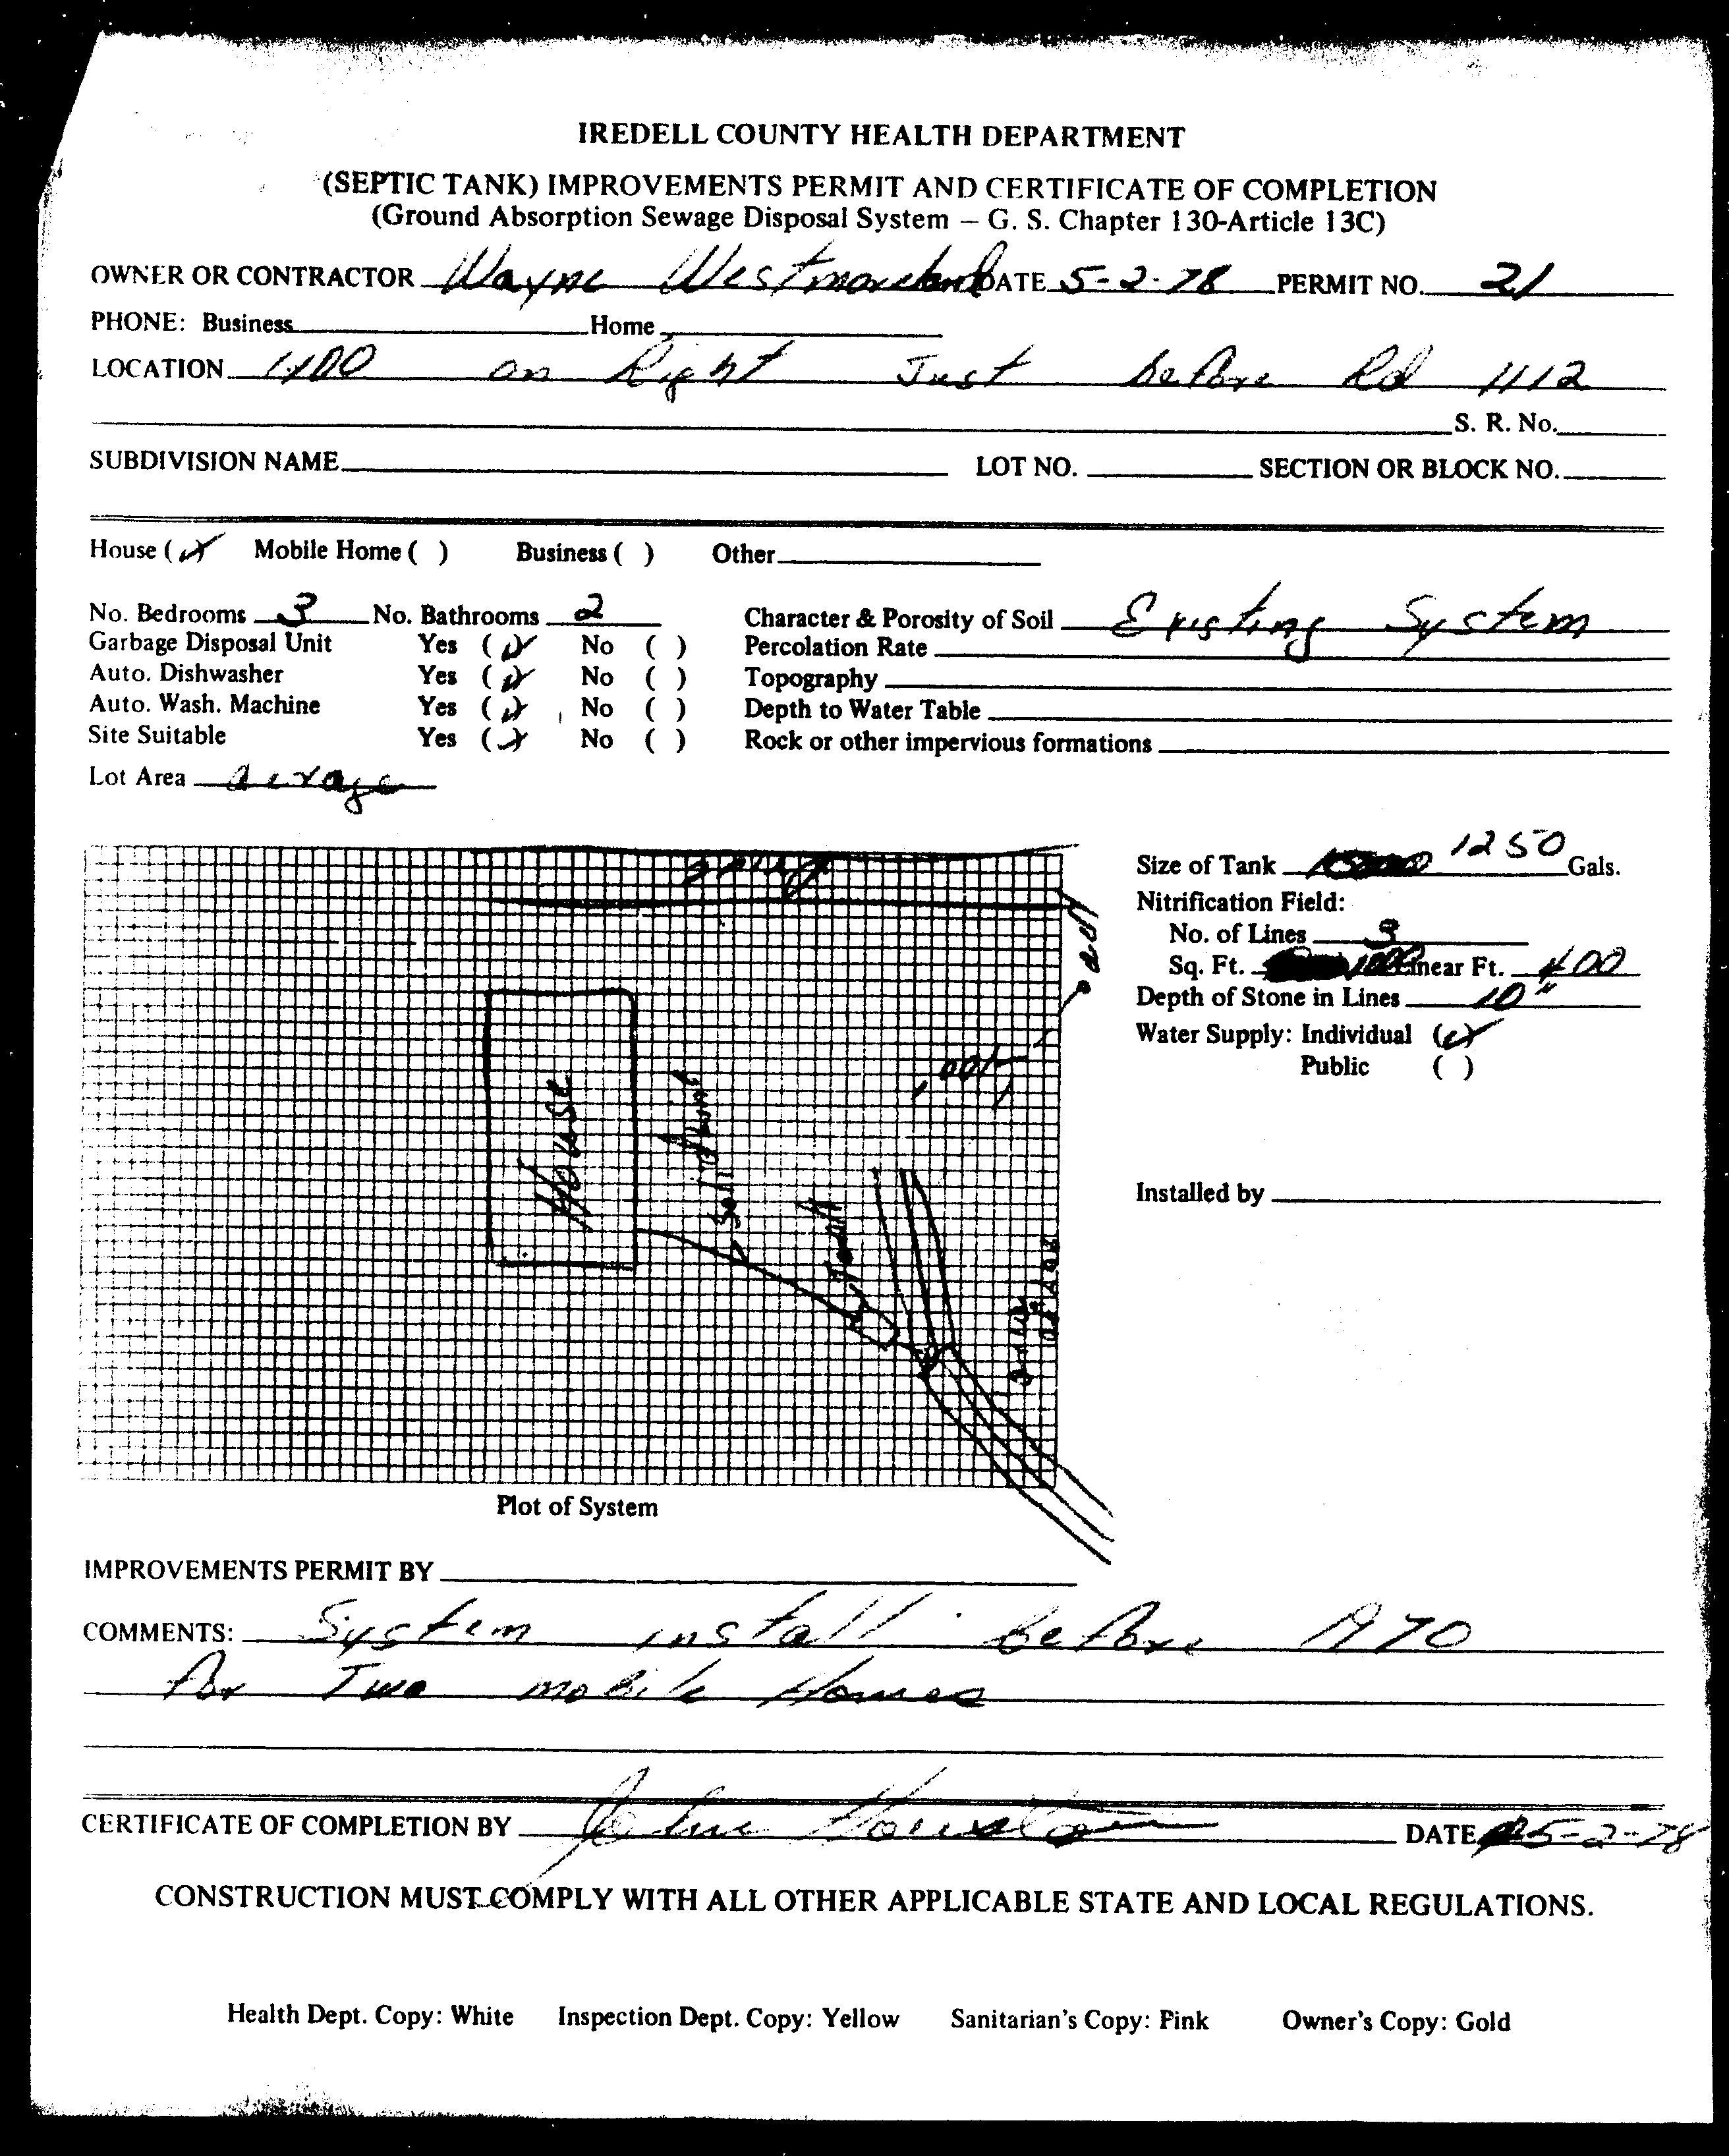 IREDELL COUNTY HEALTH DEPARTMENT
(SEPTIC TANK) IMPROVEMENTS PERMIT AND CERTIFICATE OF COMPLETION
(Ground Absorption Sewage Disposal System — G. S. Chapter 130-Article 13C)
OWNER OR CONTRACTOR Wayne Westmoreland DATE 5-2-78 PERMIT NO. 21
PHONE: Business Home
LOCATION 1100 on Right Just before Rd 1112
S. R. No.
SUBDIVISION NAME LOT NO. SECTION OR BLOCK NO.
House (✓) Mobile Home ( ) Business ( ) Other
No. Bedrooms 3 No. Bathrooms 2 Character & Porosity of Soil Existing System
Garbage Disposal Unit Yes (✓) No ( ) Percolation Rate
Auto. Dishwasher Yes (✓) No ( ) Topography
Auto. Wash. Machine Yes (✓) No ( ) Depth to Water Table
Site Suitable Yes (✓) No ( ) Rock or other impervious formations
Lot Area acrage
Size of Tank 1250 Gals.
Nitrification Field:
No. of Lines 3
Sq. Ft. Linear Ft. 400
Depth of Stone in Lines 10"
Water Supply: Individual (✓)
Public ( )
Installed by
Drive
Road
House
Solid
Tank
100'
Plot of System
IMPROVEMENTS PERMIT BY
COMMENTS: System install before 1970
for Two mobile Homes
CERTIFICATE OF COMPLETION BY DATE 5-2-78
CONSTRUCTION MUST COMPLY WITH ALL OTHER APPLICABLE STATE AND LOCAL REGULATIONS.
Health Dept. Copy: White Inspection Dept. Copy: Yellow Sanitarian's Copy: Pink Owner's Copy: Gold